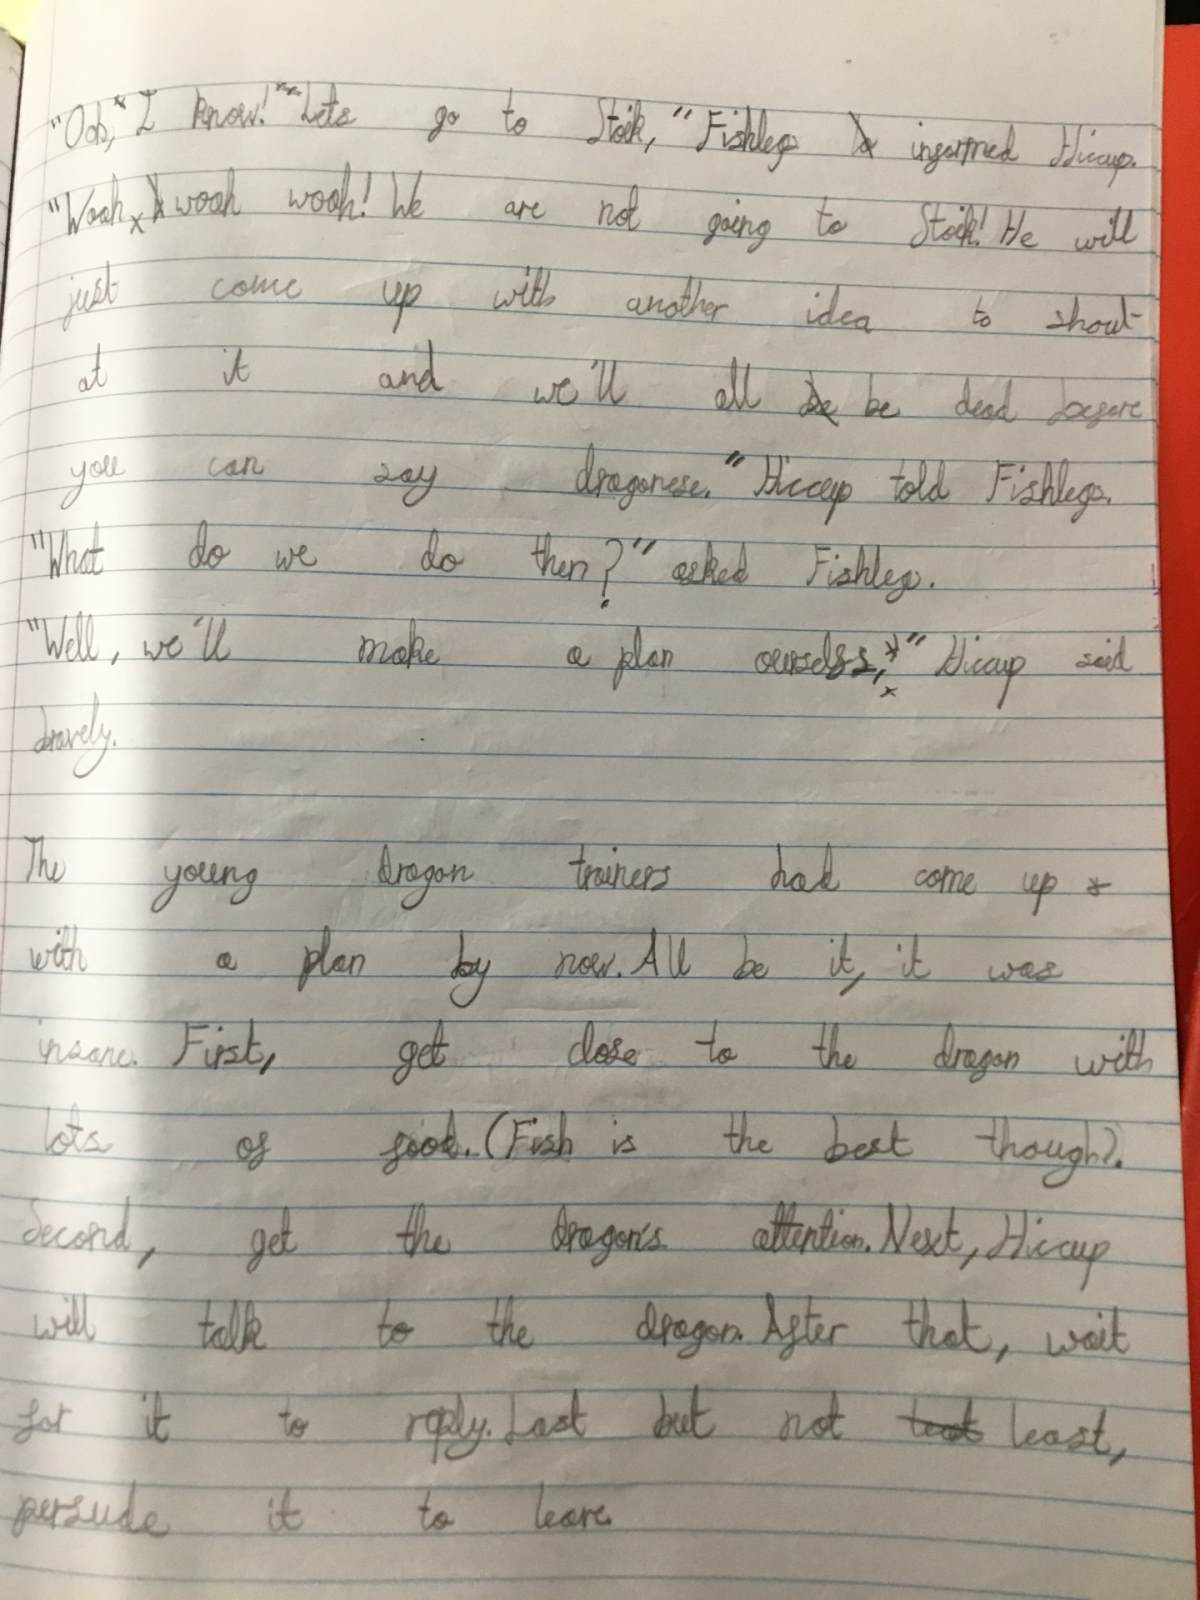 "Ooh, I know! Lets go to Stoik," Fishlegs informed Hiccup.
"Woah, woah woah! We are not going to Stoik! He will
just come up with another idea to shout
at it and we'll all be dead before
you can say dragonese." Hiccup told Fishlegs.
"What do we do then?" asked Fishlegs.
"Well, we'll make a plan ourselfs," Hicup said
bravely.
The young dragon trainers had come up
with a plan by now. All be it, it was
insane. First, get close to the dragon with
lots of food. (Fish is the best though).
Second, get the dragon's attention. Next, Hiccup
will talk to the dragon. After that, wait
for it to reply. Last but not least,
persude it to leave.